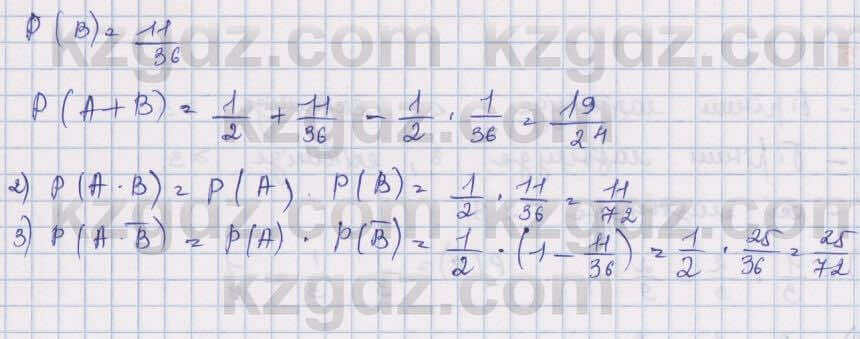 P(B) = 11/36
P(A+B) = 1/2 + 11/36 - 1/2 · 1/36 = 19/24
2) P(A·B) = P(A) · P(B) = 1/2 · 11/36 = 11/72
3) P(A·B̅) = P(A) · P(B̅) = 1/2 · (1 - 11/36) = 1/2 · 25/36 = 25/72
kzgdz.com kzgdz.com
kzgdz.com kzgdz.com
kzgdz.com